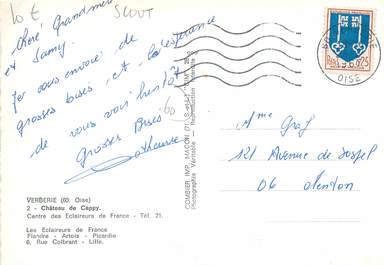 10 €
SCOUT
Chère Grand-mère
et Samy.
Je vous envoie de
grosses bises et l'espérance
de vous voir bientôt
Grosses Bises
Catherine
VERBERIE (60. Oise)
2 - Château de Cappy.
Centre des Eclaireurs de France - Tél. 21.
Les Eclaireurs de France
Flandre - Artois - Picardie
6, Rue Colbrant - Lille.
COMBIER IMP. MACON
Photographie Véritable
Reproduction Interdite
OISE
0,25
Mme Graf
121 Avenue de Sospel
06 Menton